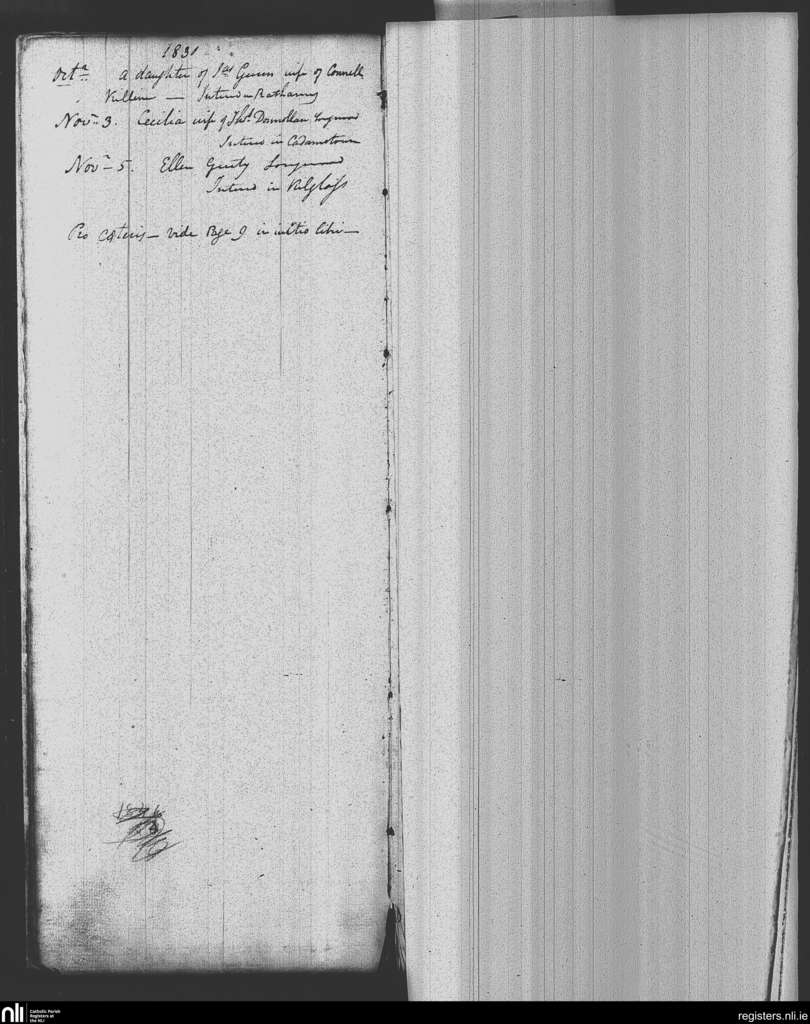 1831
Octr. a daughter of Jas. wife of Connell
Killine — Interred in Rathanny
Novr. 3. Cecilia wife of Thos. Donnollan Longwood
Interred in Cadamstown
Novr. 5. Ellen Longwood
Interred in Kilglass
Pro cæteris — vide Page 9 in initio libri —
nli
Catholic Parish
Registers at
the NLI
registers.nli.ie